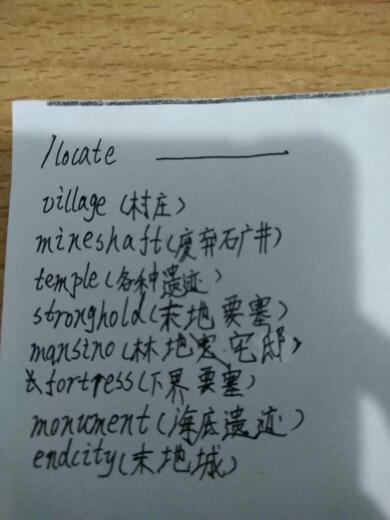 /locate ————
village (村庄)
mineshaft (废弃矿井)
temple (各种遗迹)
stronghold (末地要塞)
mansino (林地宅邸)
fortress (下界要塞)
monument (海底遗迹)
endcity (末地城)